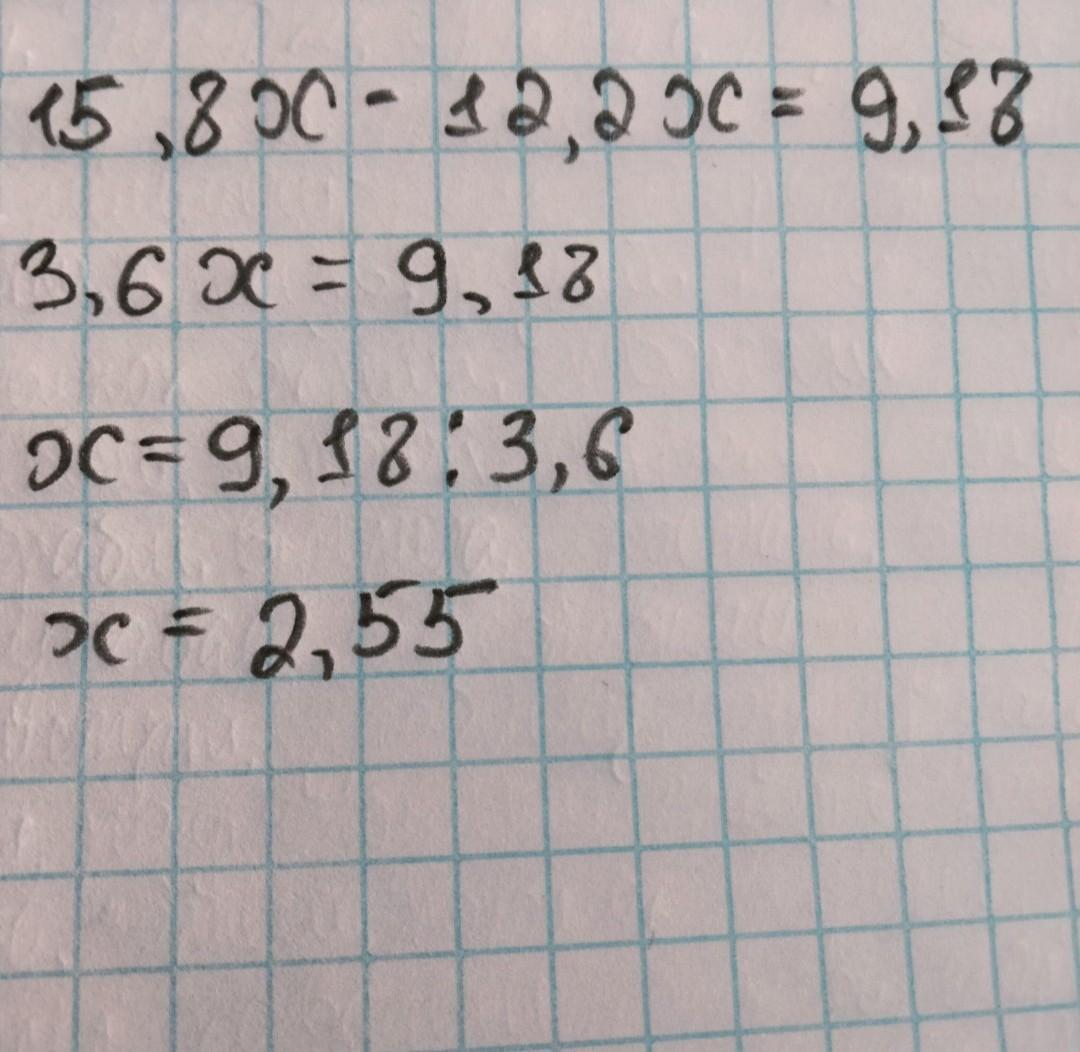 15,8x - 12,2x = 9,18
3,6x = 9,18
x = 9,18 : 3,6
x = 2,55